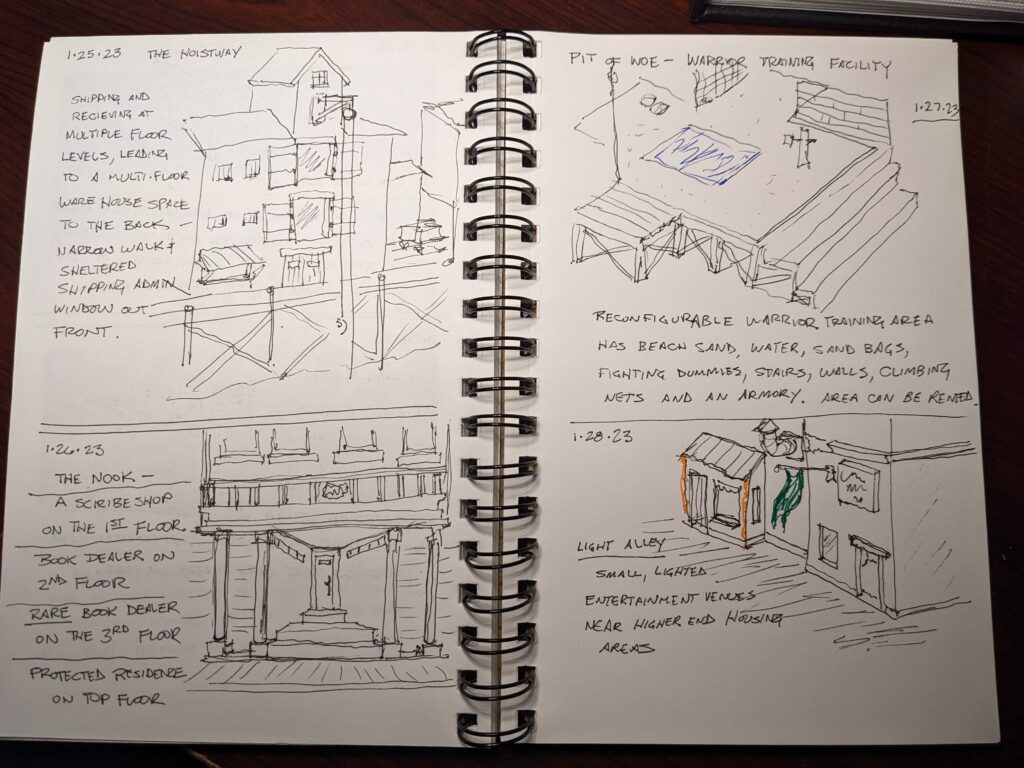 1·25·23 THE HOISTWAY
SHIPPING AND
RECIEVING AT
MULTIPLE FLOOR
LEVELS, LEADING
TO A MULTI-FLOOR
WARE HOUSE SPACE
TO THE BACK -
NARROW WALK &
SHELTERED
SHIPPING ADMIN
WINDOW OUT
FRONT.
1·26·23
THE NOOK -
A SCRIBE SHOP
ON THE 1ST FLOOR.
BOOK DEALER ON
2ND FLOOR
RARE BOOK DEALER
ON THE 3RD FLOOR
PROTECTED RESIDENSE
ON TOP FLOOR
PIT OF WOE - WARRIOR TRAINING FACILITY
1·27·23
RECONFIGURABLE WARRIOR TRAINING AREA
HAS BEACH SAND, WATER, SAND BAGS,
FIGHTING DUMMIES, STAIRS, WALLS, CLIMBING
NETS AND AN ARMORY. AREA CAN BE RENTED.
1·28·23
LIGHT ALLEY
SMALL, LIGHTED
ENTERTAINMENT VENUES
NEAR HIGHER END HOUSING
AREAS